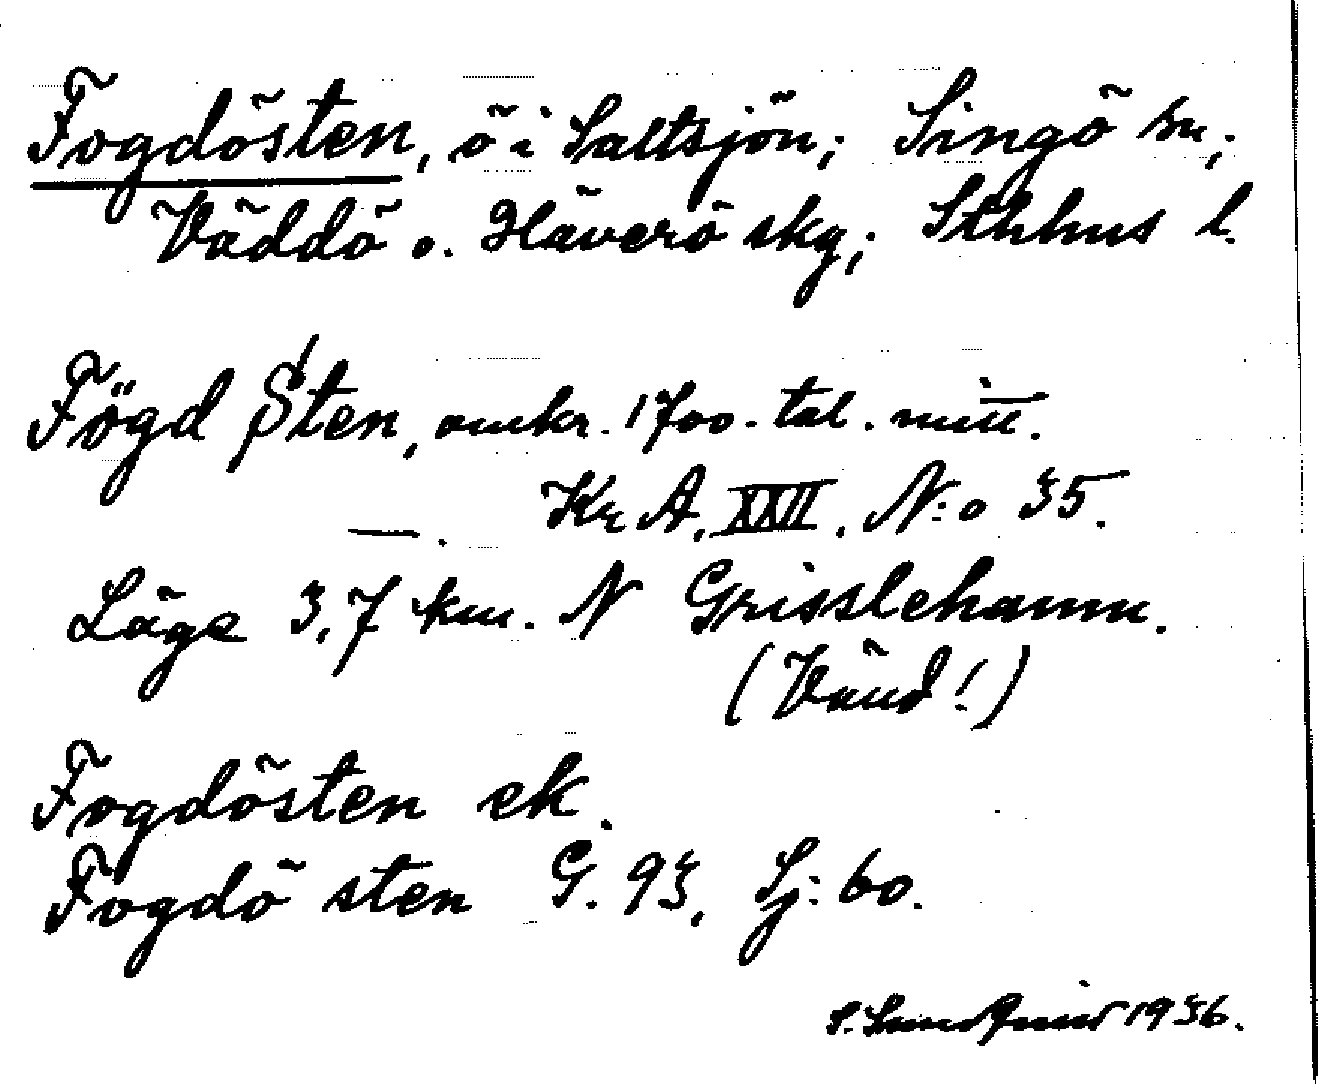 Fogdösten, ö i Saltsjön; Singö sn;
Väddö o. Häverö skg; Sthlms l.
Fögd Sten, omkr. 1700-tal. mitt.
—. Kr A, XXII, N:o 35.
Läge 3,7 km. N Grisslehamn.
(Vänd!)
Fogdösten ek.
Fogdö sten G. 93, Sj: 60.
S. Sundqvist 1936.